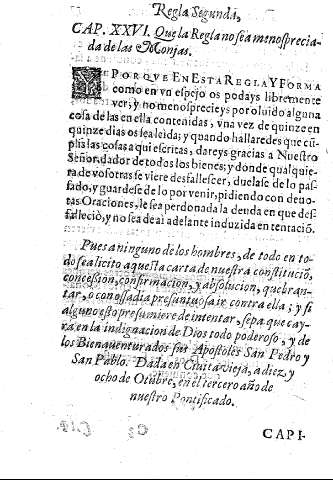 Regla Segunda,
CAP. XXVI. Que la Regla no sea menosprecia-
da de las Monjas.
Y PORQVE EN ESTA REGLA Y FORMA
como en vn espejo os podays libremente
ver, y no menosprecieys por oluido alguna
cosa de las en ella contenidas, vna vez de quinze en
quinze dias os sea leida; y quando hallaredes que cũ-
plis las cosas aqui escritas, dareys gracias a Nuestro
Señor, dador de todos los bienes; y donde qualquie-
ra de vosotras se viere desfallescer, duelase de lo pas-
sado, y guardese de lo por venir, pidiendo con deuo-
tas Oraciones, le sea perdonada la deuda en que des-
falleciò, y no sea de ai adelante induzida en tentaciõ.
Pues a ninguno de los hombres, de todo en to-
do sea licito aquesta carta de nuestra constituciõ,
concession, confirmacion, y absolucion, quebran-
tar, o con ossadia presuntuosa ir contra ella; y si
alguno esto presumiere de intentar, sepa que cay-
rà en la indignacion de Dios todo poderoso, y de
los Bienauenturados sus Apostoles San Pedro y
San Pablo. Dada en Ciuitavieja, a diez, y
ocho de Otubre, en el tercero año de
nuestro Pontificado.
CAPI-